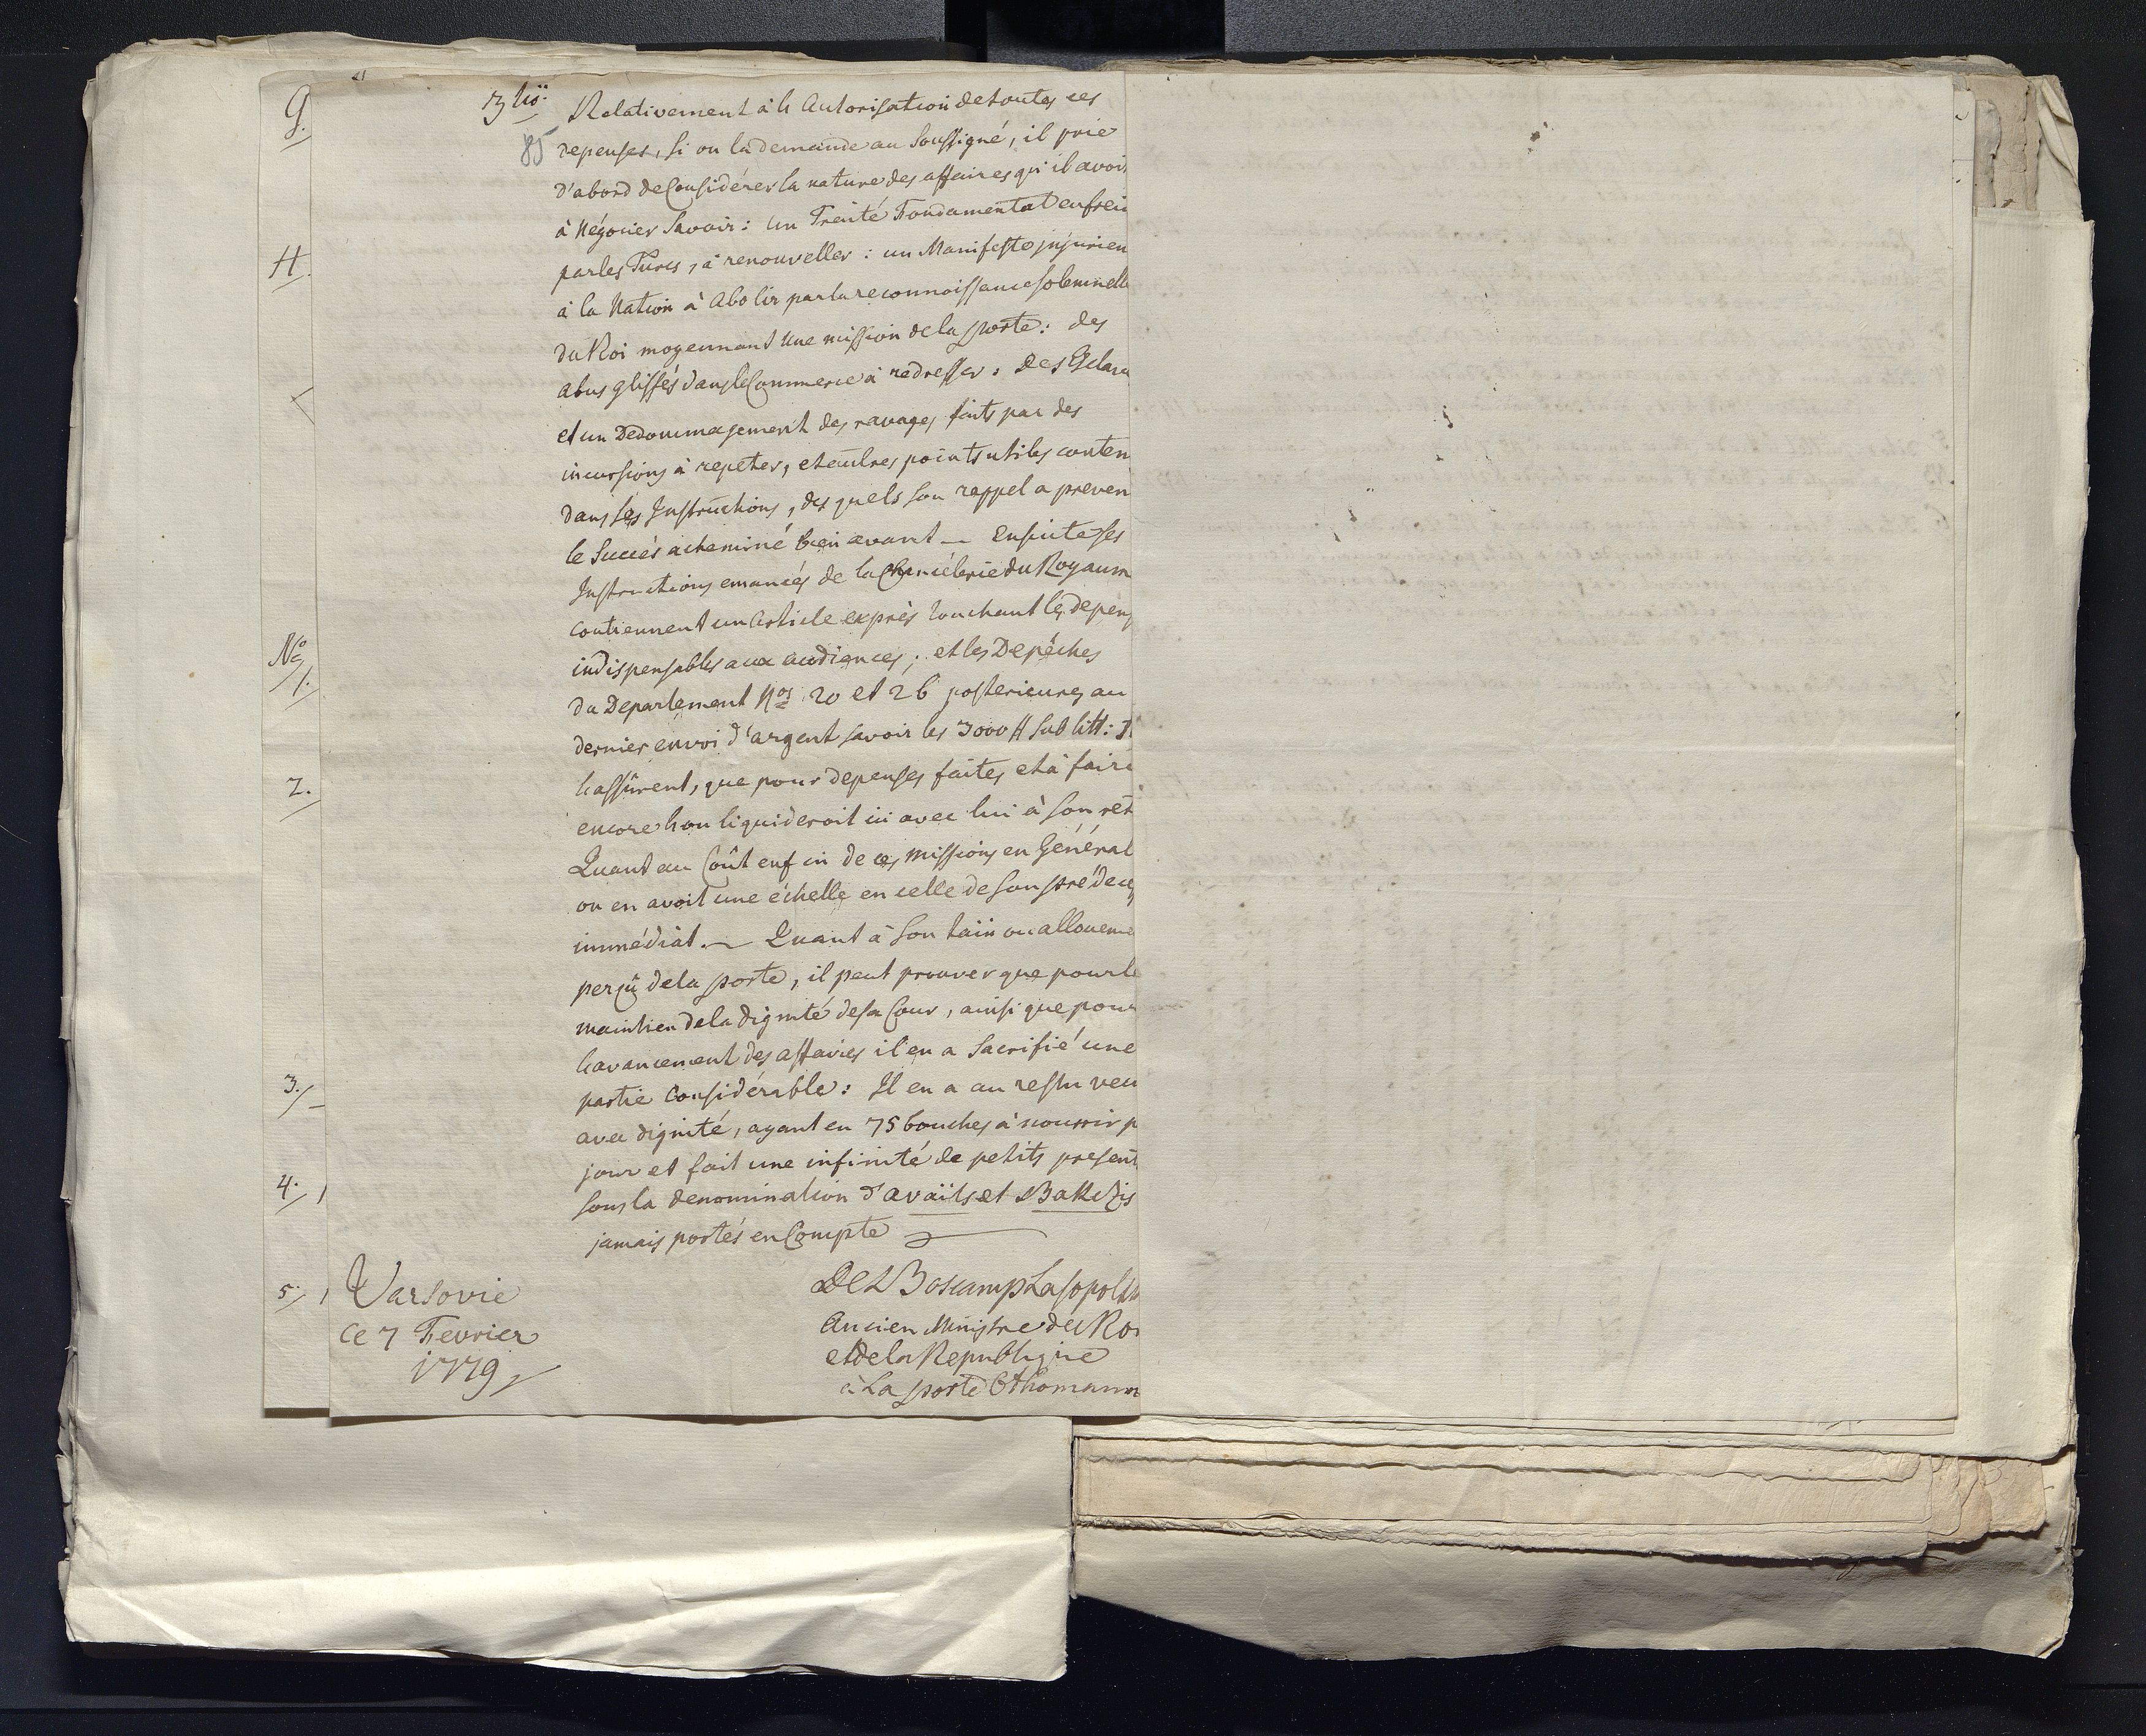 G.
H.
No
1.
2.
3.
4.
5.
3tiö.
85
Relativement à l'Autorisation de toutes ces
depenses, si on la demande au Soussigné, il prie
d'abord de Considérer la nature des affaires qu'il avoi
à Négocier Savoir: un Traité Fondamental enfrei
par les Turcs, à renouveller: un Manifeste injurieu
à la Nation à Abolir par la reconnoissance solemnelle
du Roi moyennant une mission de la Porte: des
abus glissés dans le Commerce à redresser: des Esclav
et un Dedommagement des ravages faits par des
incursions à repeter, et autres points utiles conten
dans ses Instructions, des quels son rappel a preven
le Succés acheminé bien avant — Ensuite ses
Instructions emanées de la Chancélerie du Royaum
contiennent un Article exprès touchant les depens
indispensables aux audiences; et les Depêches
du Departement Nos 20 et 26 posterieures au
dernier envoi d'argent savoir les 3000 # sub litt:
l'assûrent, que pour depenses faites et à faire
encore l'on liquideroit ici avec lui à son ret
Quant au Coût enfin de ces missions en Général
on en avoit une échelle en celle de son prédeces
immédiat. — Quant à son taïn ou alloueme
perçû de la porte, il peut prouver que pour le
maintien de la dignité de sa Cour, ainsi que pour
l'avancement des affaires il en a Sacrifié une
partie Considérable: Il en a au reste vecu
avec dignité, ayant eu 75 bouches à nourrir p
jour et fait une infinité de petits present
sous la denomination d'avaïts et Bakchis
jamais portés en Compte
Varsovie
Ce 7 Fevrier
1779
De Boscamp Lasopolski
Ancien Ministre du Roi
et de la Republique
à La porte Othomann